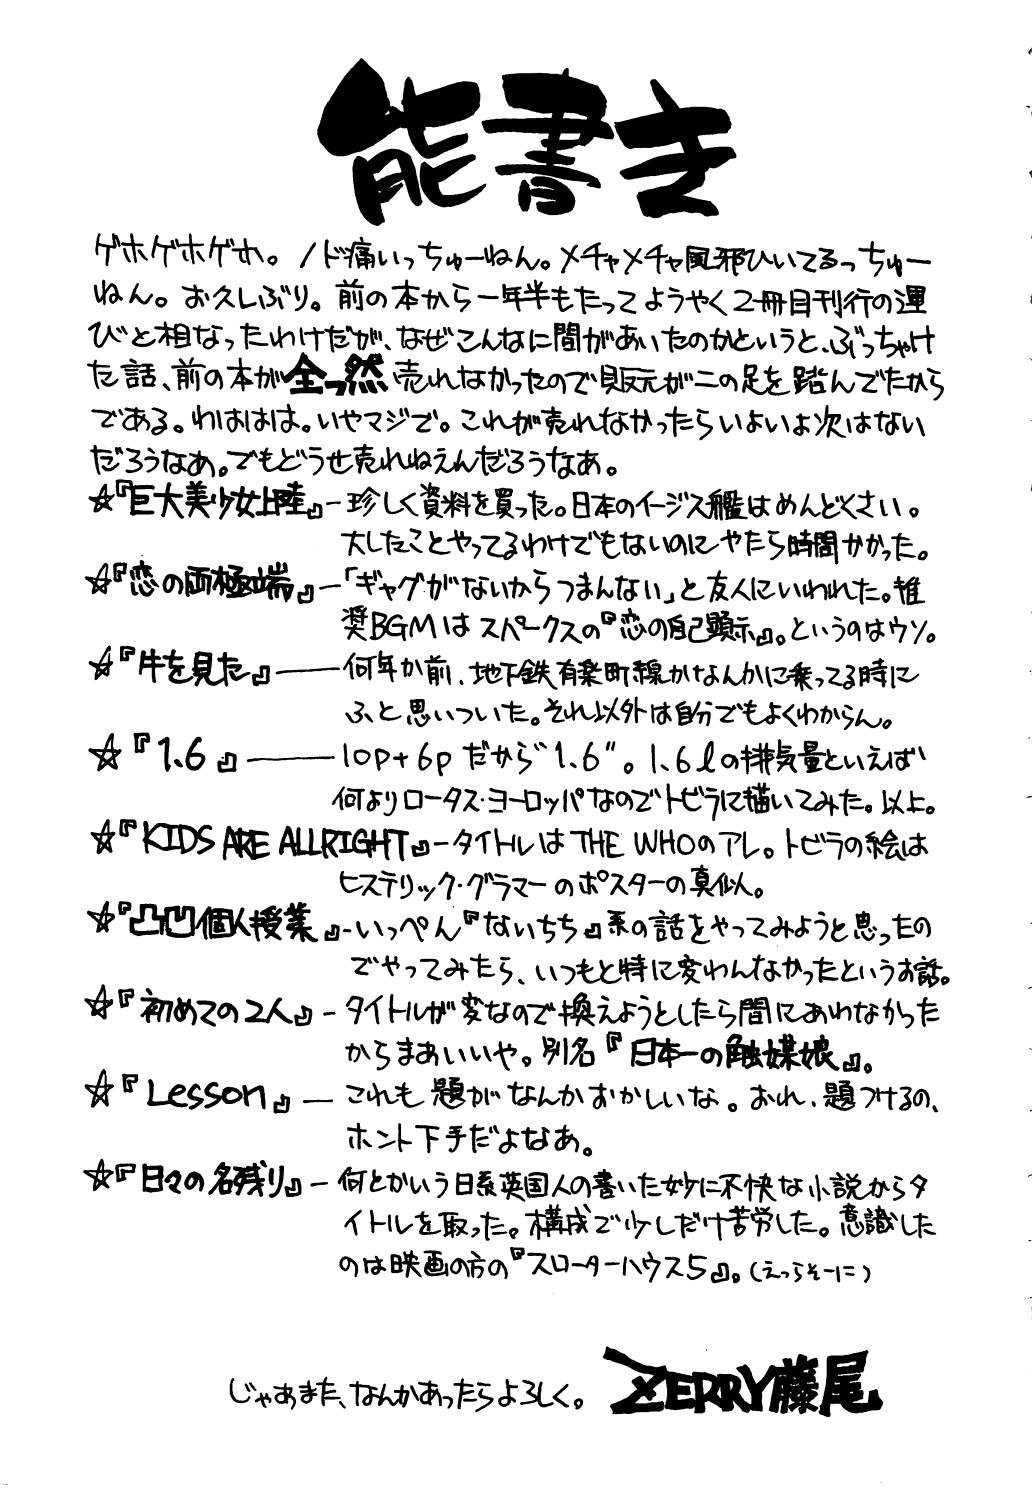 能書き
ゲホゲホゲホ。ノド痛いっちゅーねん。メチャメチャ風邪ひいてるっちゅー
ねん。お久しぶり。前の本から一年半もたってようやく2冊目刊行の運
びと相なったわけだが、なぜこんなに間があいたのかというと、ぶっちゃけ
た話、前の本が全っ然売れなかったので販元が二の足を踏んでたから
である。わははは。いやマジで。これが売れなかったらいよいよ次はない
だろうなあ。でもどうせ売れねえんだろうなあ。
☆『巨大美少女上陸』-珍しく資料を買った。日本のイージス艦はめんどくさい。
大したことやってるわけでもないのにやたら時間かかった。
☆『恋の両極端』-「ギャグがないからつまんない」と友人にいわれた。推
奨BGMはスパークスの『恋の自己顕示』。というのはウソ。
☆『牛を見た』——何年か前、地下鉄有楽町線かなんかに乗ってる時に
ふと思いついた。それ以外は自分でもよくわからん。
☆『1.6』——10p+6pだから"1.6"。1.6ℓの排気量といえば
何よりロータス・ヨーロッパなのでトビラに描いてみた。以上。
☆『KIDS ARE ALLRIGHT』-タイトルはTHE WHOのアレ。トビラの絵は
ヒステリック・グラマーのポスターの真似。
☆『凸凹個人授業』-いっぺん『ないちち』系の話をやってみようと思ったの
でやってみたら、いつもと特に変わんなかったというお話。
☆『初めての2人』-タイトルが変なので換えようとしたら間にあわなかった
からまあいいや。別名『日本一の触媒娘』。
☆『Lesson』—これも題がなんかおかしいな。おれ、題つけるの、
ホント下手だよなあ。
☆『日々の名残り』-何とかいう日系英国人の書いた妙に不快な小説からタ
イトルを取った。構成で少しだけ苦労した。意識した
のは映画の方の『スローターハウス5』。(えっらそーに)
じゃあまた、なんかあったらよろしく。 ZERRY藤尾